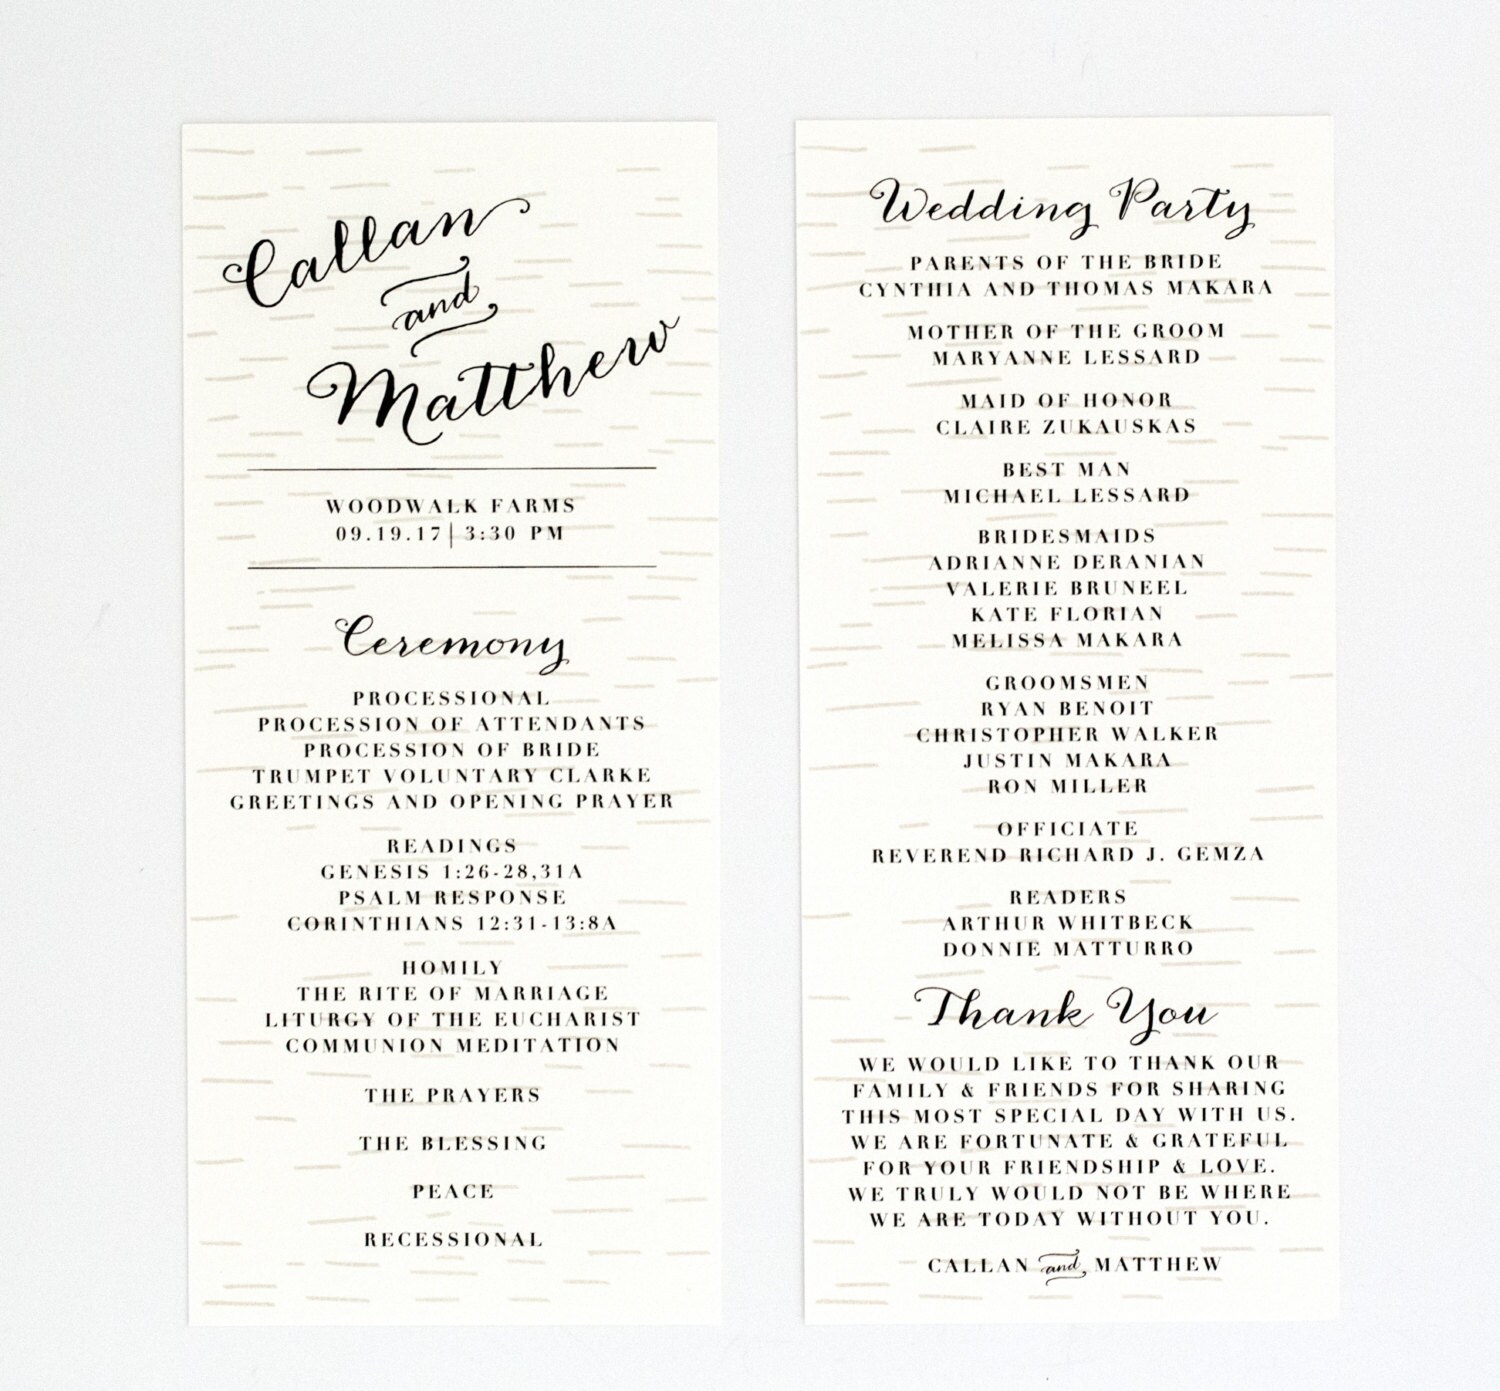 Callan
and
Matthew
WOODWALK FARMS
09.19.17 | 3:30 PM
Ceremony
PROCESSIONAL
PROCESSION OF ATTENDANTS
PROCESSION OF BRIDE
TRUMPET VOLUNTARY CLARKE
GREETINGS AND OPENING PRAYER
READINGS
GENESIS 1:26-28,31A
PSALM RESPONSE
CORINTHIANS 12:31-13:8A
HOMILY
THE RITE OF MARRIAGE
LITURGY OF THE EUCHARIST
COMMUNION MEDITATION
THE PRAYERS
THE BLESSING
PEACE
RECESSIONAL
Wedding Party
PARENTS OF THE BRIDE
CYNTHIA AND THOMAS MAKARA
MOTHER OF THE GROOM
MARYANNE LESSARD
MAID OF HONOR
CLAIRE ZUKAUSKAS
BEST MAN
MICHAEL LESSARD
BRIDESMAIDS
ADRIANNE DERANIAN
VALERIE BRUNEEL
KATE FLORIAN
MELISSA MAKARA
GROOMSMEN
RYAN BENOIT
CHRISTOPHER WALKER
JUSTIN MAKARA
RON MILLER
OFFICIATE
REVEREND RICHARD J. GEMZA
READERS
ARTHUR WHITBECK
DONNIE MATTURRO
Thank You
WE WOULD LIKE TO THANK OUR
FAMILY & FRIENDS FOR SHARING
THIS MOST SPECIAL DAY WITH US.
WE ARE FORTUNATE & GRATEFUL
FOR YOUR FRIENDSHIP & LOVE.
WE TRULY WOULD NOT BE WHERE
WE ARE TODAY WITHOUT YOU.
CALLAN and MATTHEW